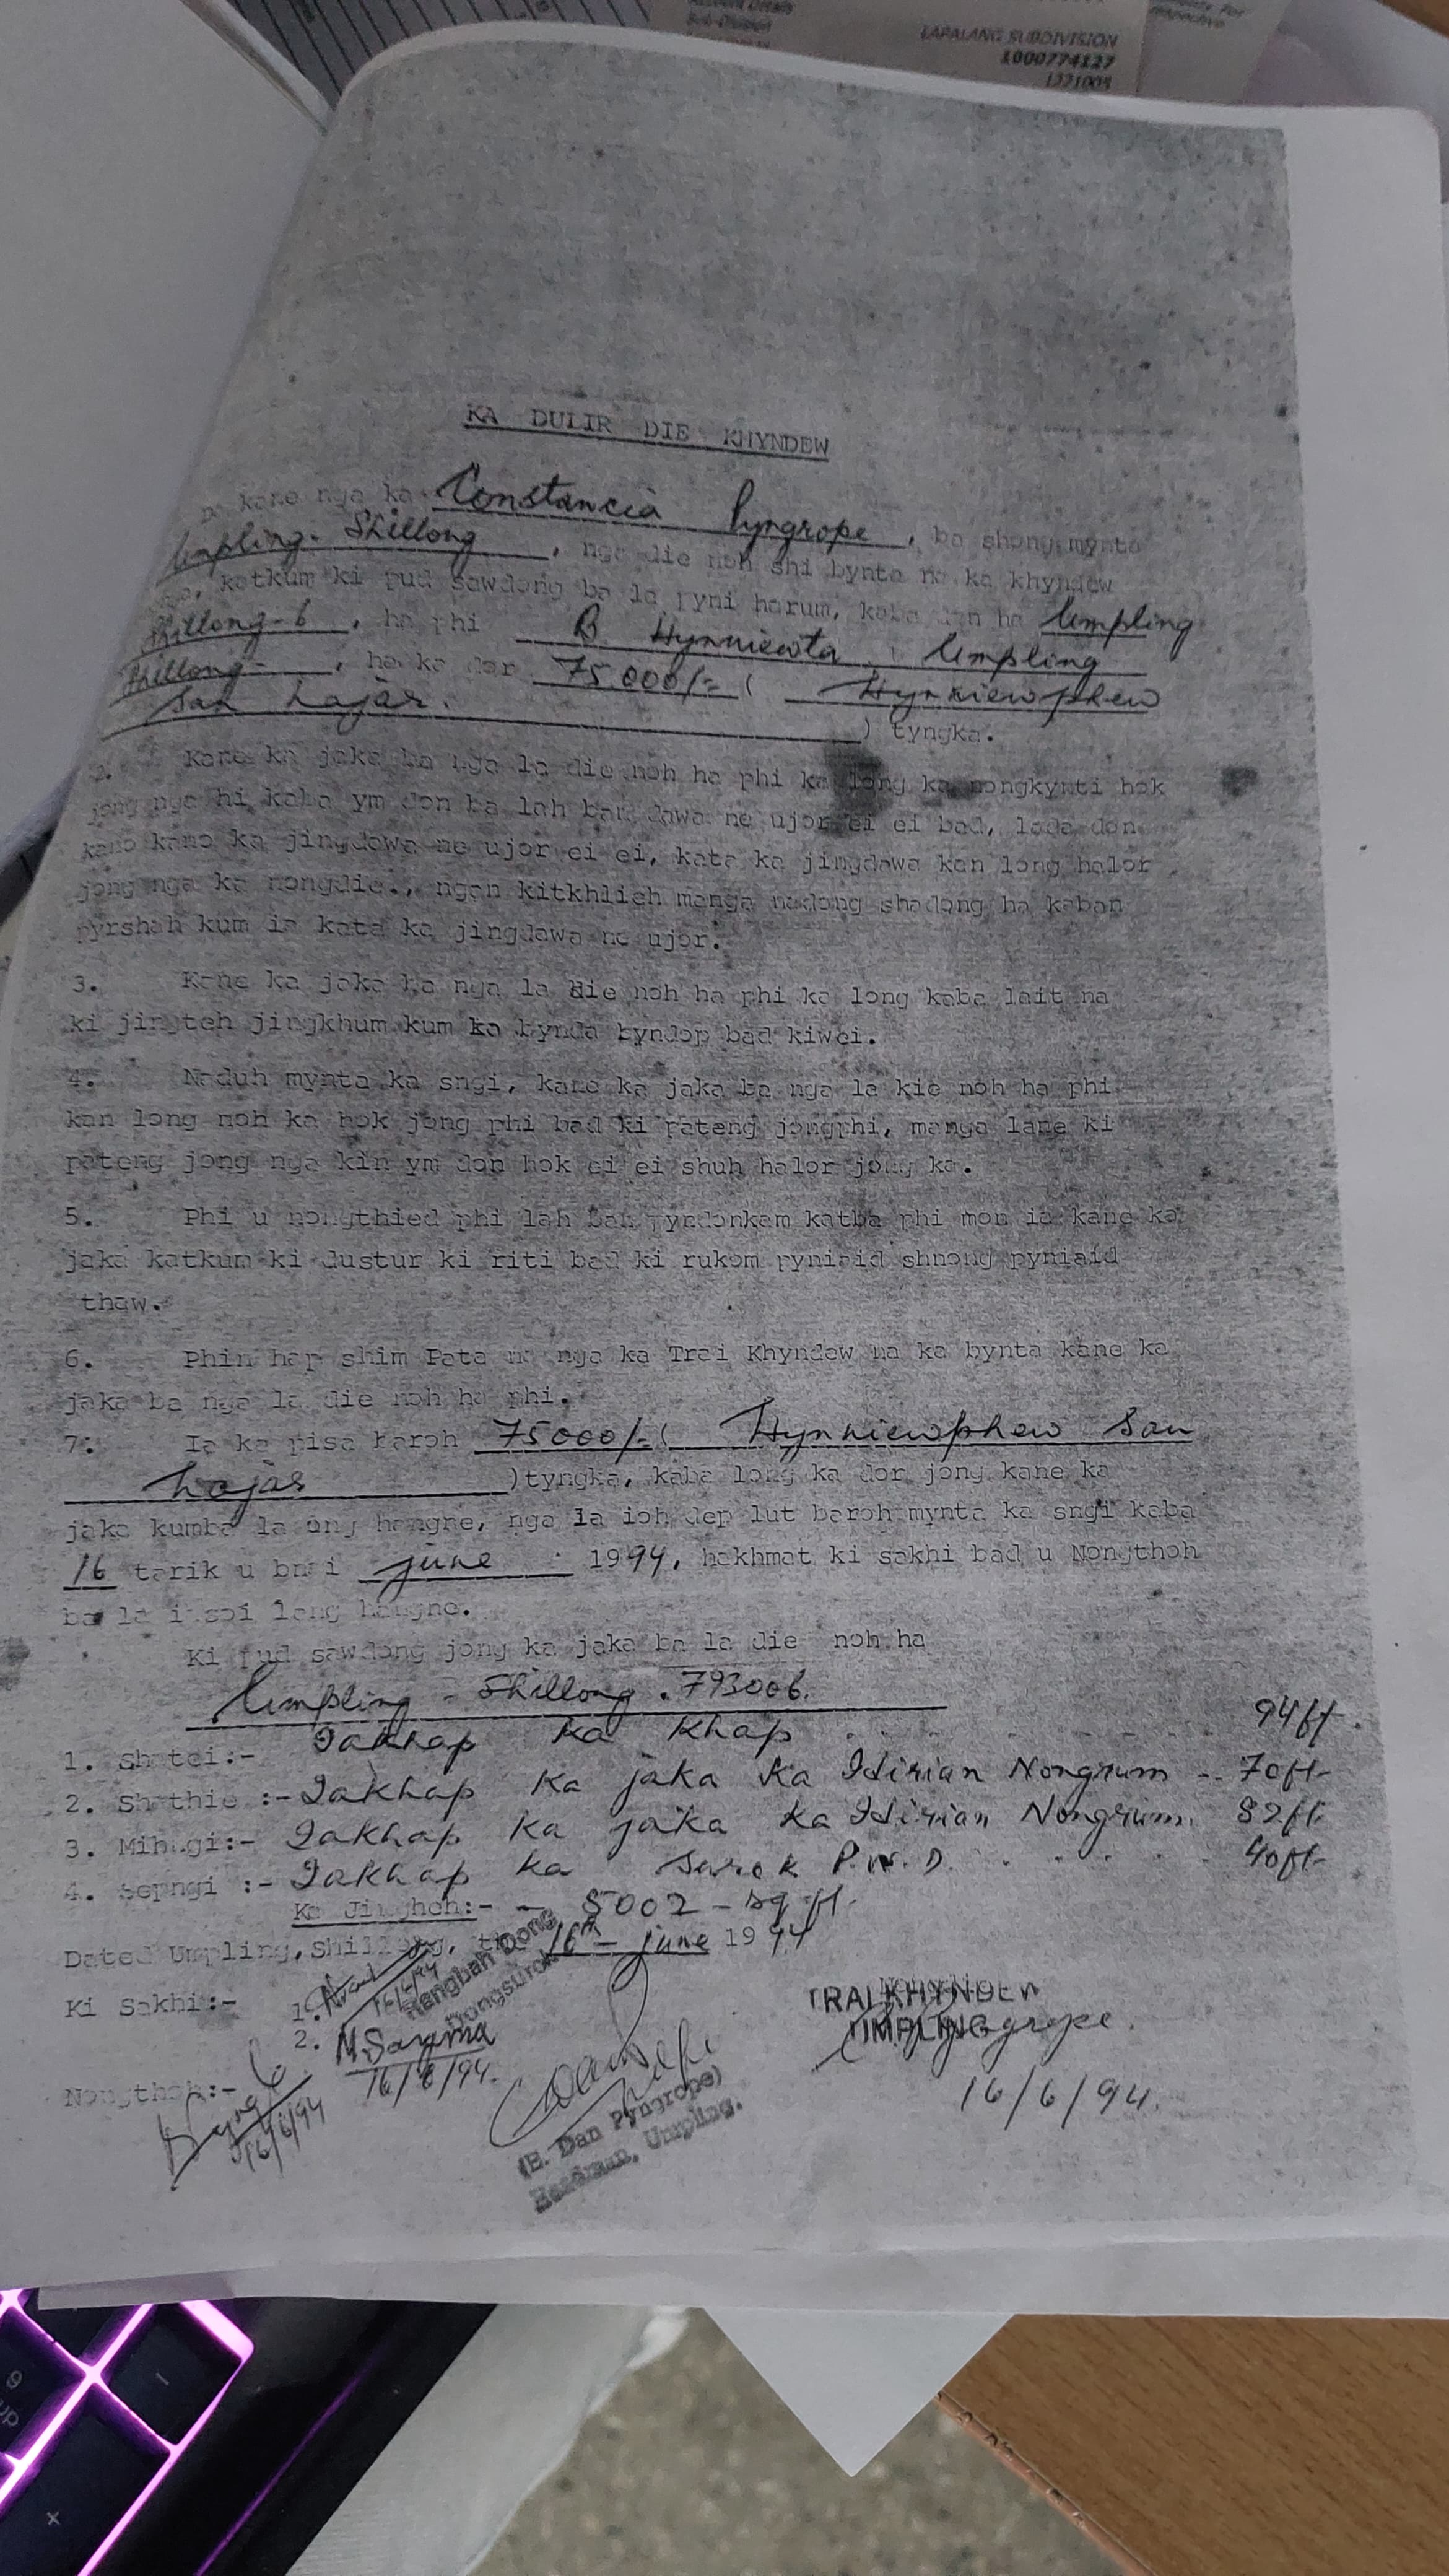 LAPALANG SUBDIVISION
1000774127
1221005
KA DULIR DIE KHYNDEW
kane nga ka Constancia Pyngrope, ba shong mynta
Umpling. Shillong, nga die noh shi bynta na ka khyndew
katkum ki pud sawdong ba la pyni harum, kaba don ha Umpling
Shillong-6, ha phi B Hynniewta Umpling
Shillong-, ha ka dor 75.000/-= ( Hynniewphew
san hajar. ) tyngka.
2. Kane ka jaka ba nga la die noh ha phi ka long ka nongkynti hok
jong nga hi kaba ym don ba lah ban dawa ne ujor ei ei bad, lada don
kano kano ka jingdawa ne ujor ei ei, kata ka jingdawa kan long halor
jong nga ka nongdie., ngan kitkhlieh manga nadong shadong ha kaban
pyrshah kum ia kata ka jingdawa ne ujor.
3. Kane ka jaka ba nga la die noh ha phi ka long kaba lait na
ki jingteh jingkhum kum ka bynda byndop bad kiwei.
4. Naduh mynta ka sngi, kane ka jaka ba nga la kie noh ha phi
kan long noh ka hok jong phi bad ki pateng jongphi, manga lane ki
pateng jong nga kin ym don hok ei ei shuh halor jong ka.
5. Phi u nongthied phi lah ban pyndonkam katba phi mon ia kane ka
jaka katkum ki dustur ki riti bad ki rukom pyniaid shnong pyniaid
thaw.
6. Phin hap shim Pata na nga ka Trai Khyndew na ka bynta kane ka
jaka ba nga la die noh ha phi.
7. Ia ka pisa baroh 75000/-( Hynniewphew San
hajar )tyngka, kaba long ka dor jong kane ka
jaka kumba la ong hangne, nga la ioh dep lut baroh mynta ka sngi kaba
16 tarik u bnai june 1994, hakhmat ki sakhi bad u Nongthoh
ba la i soi lang hangne.
Ki pud sawdong jong ka jaka ba la die noh ha
Umpling - Shillong. 793006.
1. Shatei:- Iakhap ka khap 94ft.
2. Shathie :- Iakhap ka jaka ka Hirian Nongrum -- 70ft-
3. Mihngi:- Iakhap ka jaka ka Hirian Nongrum. 82ft.
4. Sepngi :- Iakhap ka surok P.W.D. 40ft-
Ka Jingheh:- - 5002 - sq.ft.
Dated Umpling,Shillong, the 16th - june 1994
Ki Sakhi:- 1. 16/6/94
Rangbah Dong
Dongsurok
2. M. Sarma
16/6/94.
TRAI KHYNDEW
UMPLING
C. Pyngrope.
16/6/94.
Nongthoh:-
16/6/94
(E. Dan Pyngrope)
Headman, Umpling.